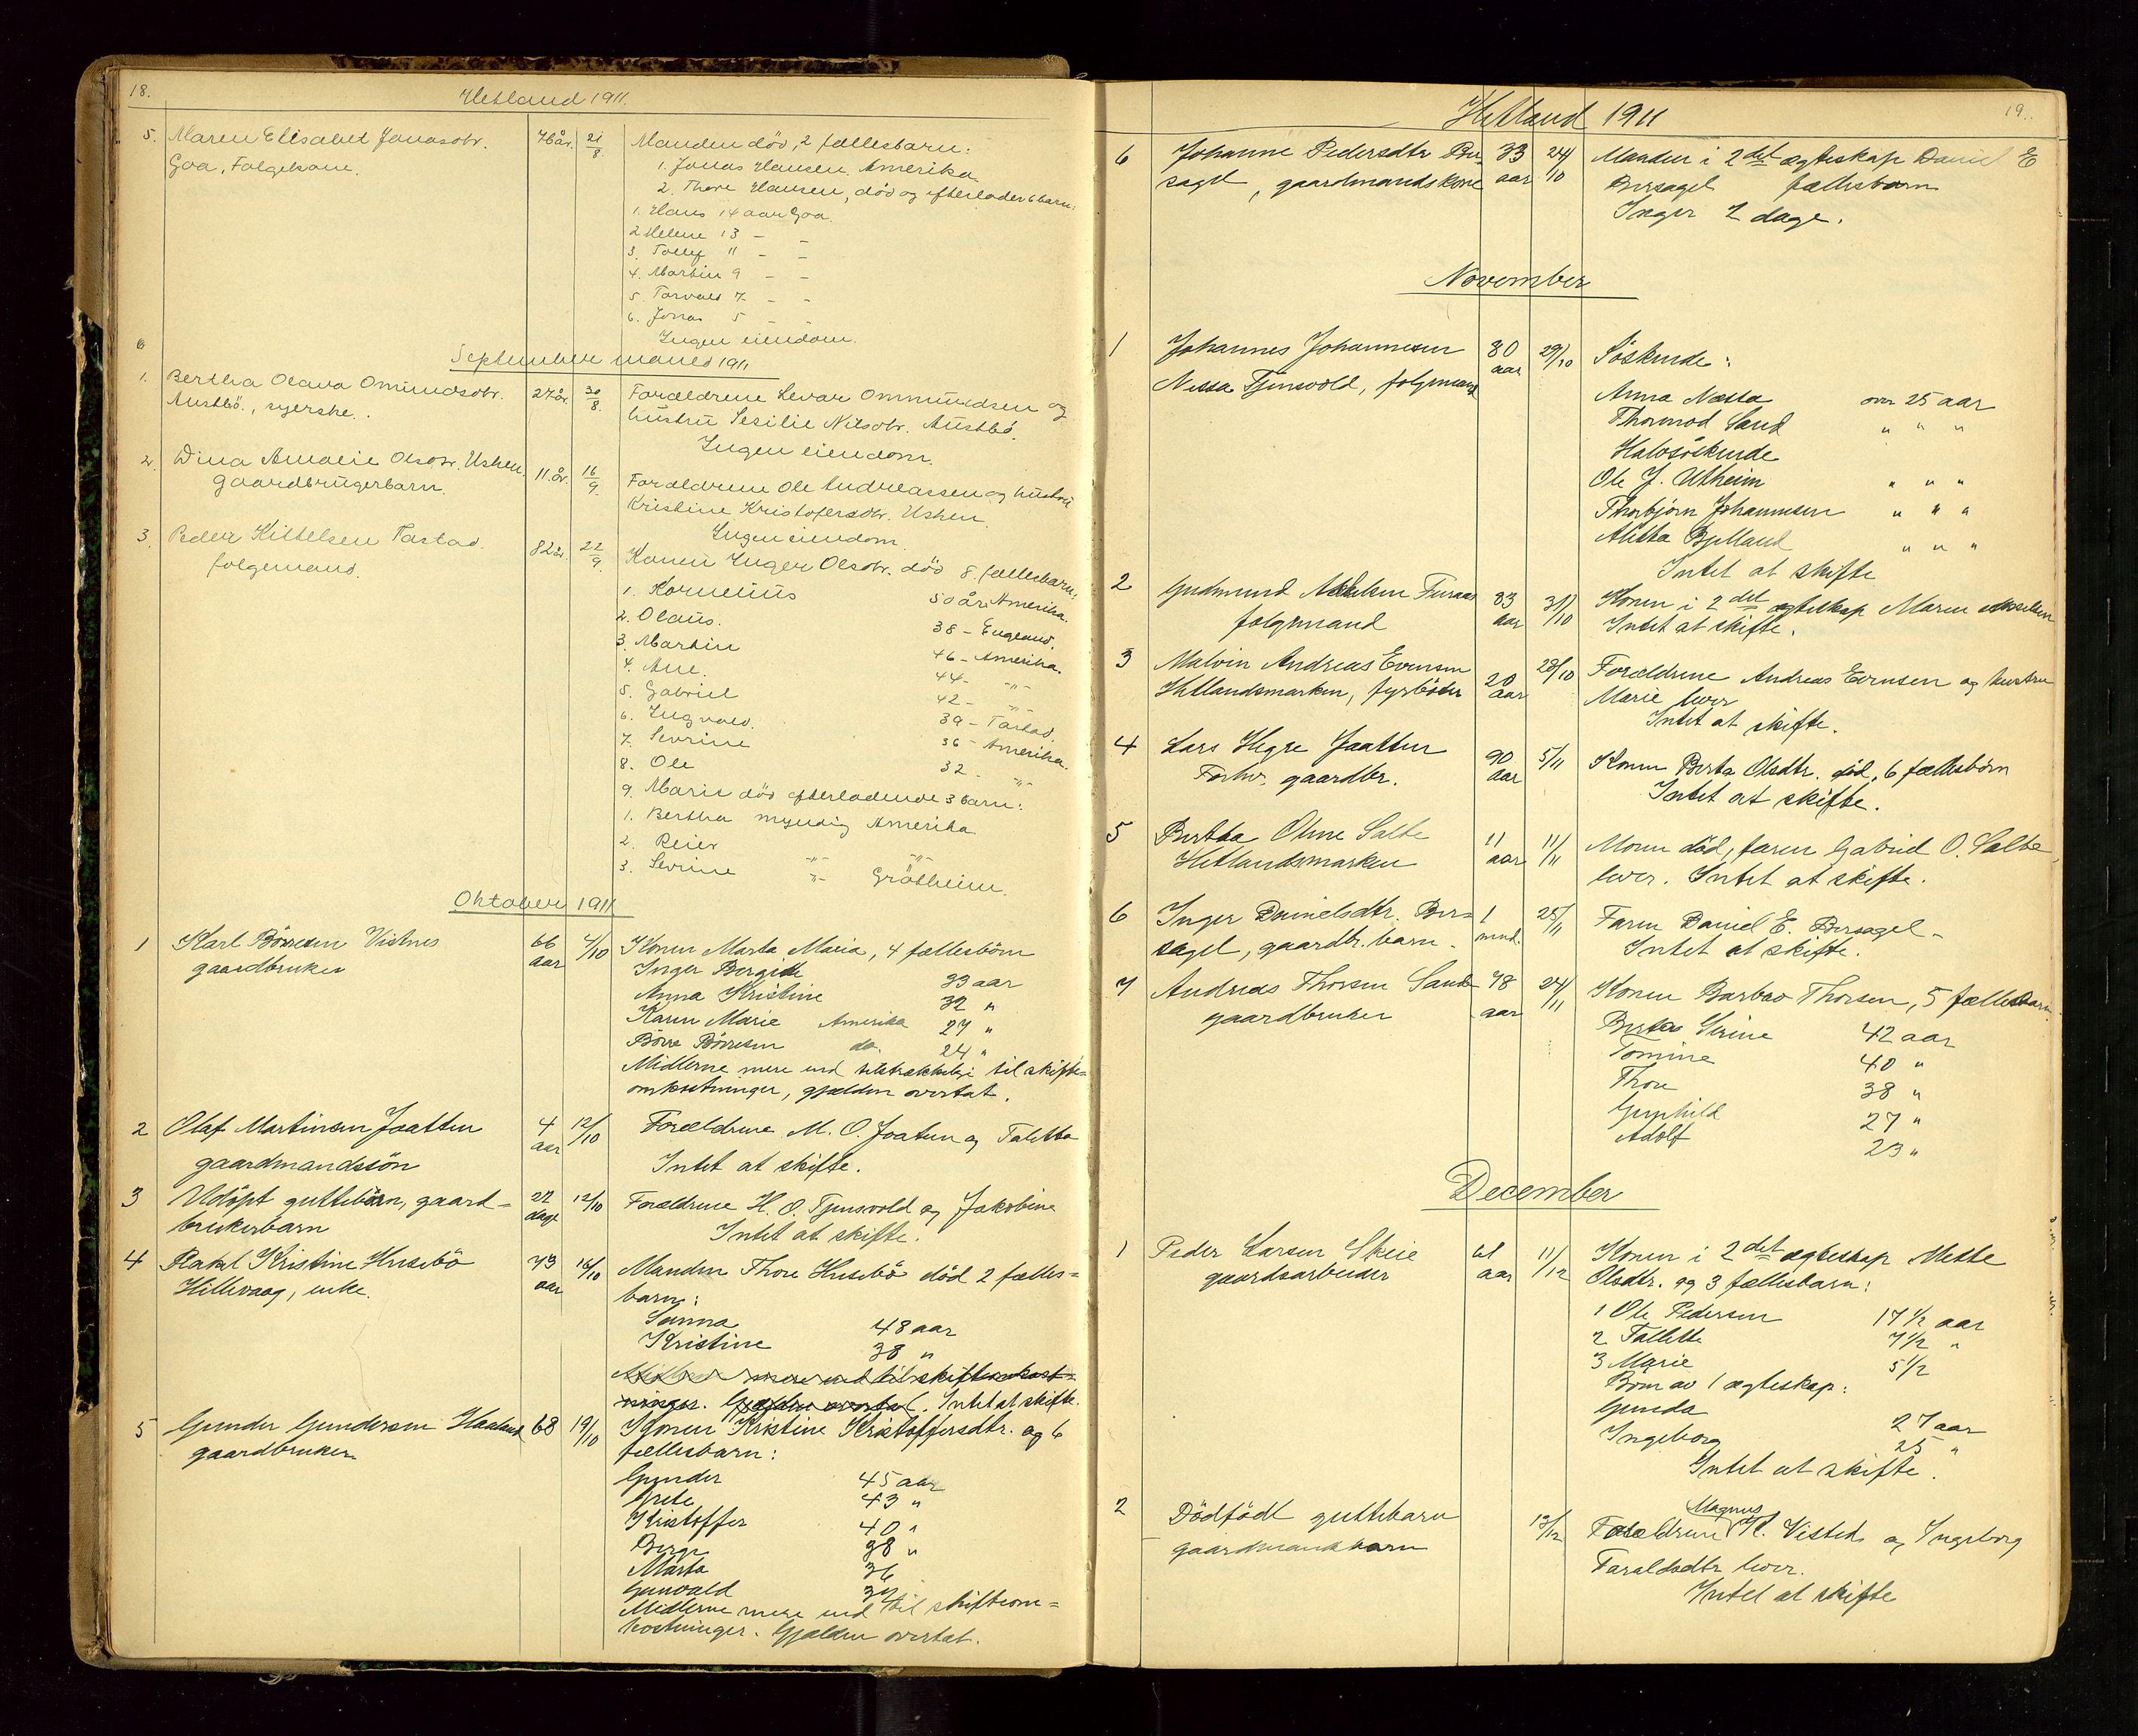 18.
Hetland 1911.
5. Maren Elisabet Jonasdtr. 76 år. 21/8. Manden död, 2 fællesbarn:
Goa, Folgekone.
1. Jonas Hansen. Amerika
2. Thore Hansen, död og efterlader 6 barn:
1. Hans 14 aar Goa.
2 Helene 13 - -
3. Tollef 11 - -
4. Martin 9 - -
5. Torvald 7 - -
6. Jonas 5 - -
Ingen eiendom.
September maaned 1911
1. Bertha Olava Omundsdtr. 27 år. 30/8. Forældrene Sevar Ommundsen og
Austbö, syerske.
hustru Sesilie Nilsdtr. Austbö.
Ingen eiendom.
2. Dina Amalie Olsdtr. Usken. 11. år. 16/9. Forældrene Ole Andreassen og hustru
gaardbrugerbarn.
Kristine Kristofersdtr. Usken.
Ingen eiendom.
3. Peder Kittelsen Tastad. 82 år. 22/9. Konen Inger Olsdtr. död 8 fællesbarn:
folgemand.
1. Kornelius 50 år Amerika.
2. Olaus. 38 - England.
3. Martin 46 - Amerika.
4. Ane. 44 - -"-
5. Gabriel 42 - -"-
6. Ingvald. 39 - Tastad.
7. Sevrine 36 - Amerika.
8. Ole 32 -"-
9. Marie död efterladende 3 barn:
1. Bertha myndig Amerika
2. Peier -"- -"-
3. Sevrine -"- Grötheim.
Oktober 1911
1 Karl Börresen Vistnes 66 aar 4/10 Konen Marta Maria, 4 fællesbörn
gaardbruker
Inger Bergitte 33 aar
Anna Kristine 32 "
Karen Marie Amerika 27 "
Börre Börresen do. 24 "
Midlerne mere end tilstrækkelige til skifte=
omkostninger, gjælden overtat.
2 Olaf Martinsen Jaatten 4 aar 12/10 Forældrene M. O. Jaatun og Taletta
gaardmandssön
Intet at skifte.
3 Udöpt guttebarn, gaard= 22 dage 12/10 Forældrene H. O. Tjensvold og Jakobine
brukerbarn
Intet at skifte.
4 Rakel Kristine Husebö 73 aar 16/10 Manden Thore Husebö död 2 fælles=
Hillevaag, enke.
barn:
Sanna 48 aar
Kristine 38 "
mere end til skifteomkost=
ninger. Gjælden overtat. Intet at skifte.
5 Gunder Gundersen Haaland 68 19/10 Konen Kristine Kristoffersdtr. og 6
gaardbruker
fællesbarn:
Gunder 45 aar
Grete 43 "
Kristoffer 40 "
Berge 38 "
Marta 36
Gunvald 32
Midlerne mere end til skifteom=
kostninger. Gjælden overtat.
19.
Hetland 1911
6 Johanne Pedersdtr Ber= 33 aar 24/10 Manden i 2det ægteskap Daniel E
sagel, gaardmandskone
Bersagel fællesbarn
Inger 2 dage.
November
1 Johannes Johannesen 80 aar 29/10 Söskende:
Nessa Tjensvold, folgemand
Anna Næsta over 25 aar
Thormod Sand " " "
Halvsöskende
Ole J. Utheim " " "
Thorbjörn Johannesen " " "
Aletta Bjelland " " "
Intet at skifte
2 Gudmund Furaas 83 aar 31/10 Konen i 2det ægteskap Maren
folgemand
Intet at skifte.
3 Malvin Andreas Evensen 20 aar 28/10 Forældrene Andreas Evensen og hustru
Hetlandsmarken, fyrböter
Marie lever
Intet at skifte.
4 Lars Hegre Jaatten 90 aar 5/11 Konen Berta Olsdtr. död, 6 fællesbörn
Forhv. gaardbr.
Intet at skifte.
5 Bertha Oline Salte 11 aar 11/11 Moren död, faren Gabriel O. Salte
Hetlandsmarken
lever. Intet at skifte.
6 Inger Danielsdtr. Ber= 1 mnd. 25/11 Faren Daniel E. Bersagel.
sagel, gaardbr. barn.
Intet at skifte.
7 Andreas Thorsen Sande 78 aar 24/11 Konen Barbro Thorsen, 5 fællesbarn
gaardbruker
Berta Serine 42 aar
Tomine 40 "
Thore 38 "
Gunhild 27 "
Adolf 23 "
December
1 Peder Larsen Skeie 61 aar 11/12 Konen i 2det ægteskap Mette
gaardsarbeider
Olsdtr. og 3 fællesbarn:
1 Ole Pedersen 17 1/2 aar
2 Tallette 7 1/2 "
3 Marie 5 1/2
Born av 1 ægteskap:
Gunda 27 aar
Ingeborg 25 "
Intet at skifte.
2 Dödfödt guttebarn 13/12 Forældrene Magnus K. Viste og Ingeborg
gaardmandsbarn
Faraldsdtr lever.
Intet at skifte